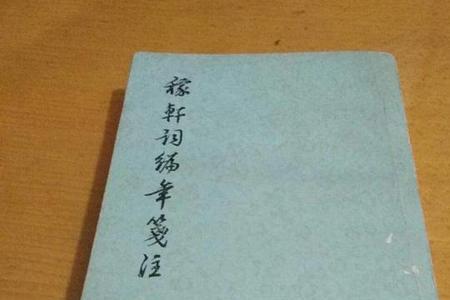 稼軒詞編年箋注